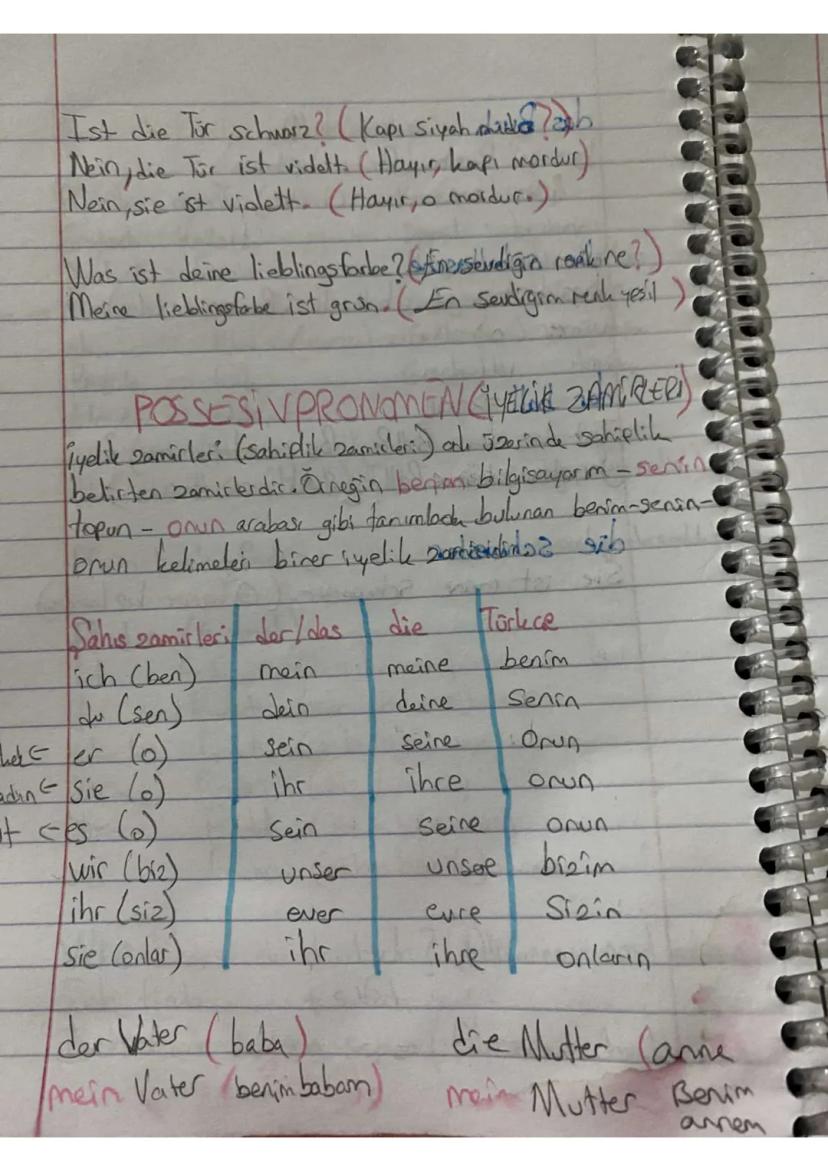 Ist die Tür schwarz? (Kapı siyah
Nein, die Tür ist videlt. (Hayır, kapı mordur)
Nein, sie ist violett. (Hayır, o mordur.)
Was ist deine lieblingsfarbe? renk ne?)
Meine lieblingsfabe ist grün. (En sevdiğim renk yeşil)
POSSESiVPRONOMEN (iYELiK ZAMiRLERi)
iyelik zamirleri (sahiplik zamirleri) ad üzerinde sahiplik
belirten zamirlerdir. Örneğin benim bilgisayarım - senin
topun - onun arabası gibi tanımlada bulunan benim-senin-
onun kelimeleri birer iyelik
Şahıs zamirleri der/das die Türkçe
ich (ben) mein meine benim
du (sen) dein deine Senin
er (o) sein seine Onun
sie (o) ihr ihre onun
es (o) sein seine onun
wir (biz) unser unsere bizim
ihr (siz) euer eure Sizin
sie (onlar) ihr ihre onların
der Vater (baba) die Mutter (anne
mein Vater (benim babam) mein Mutter Benim
annem